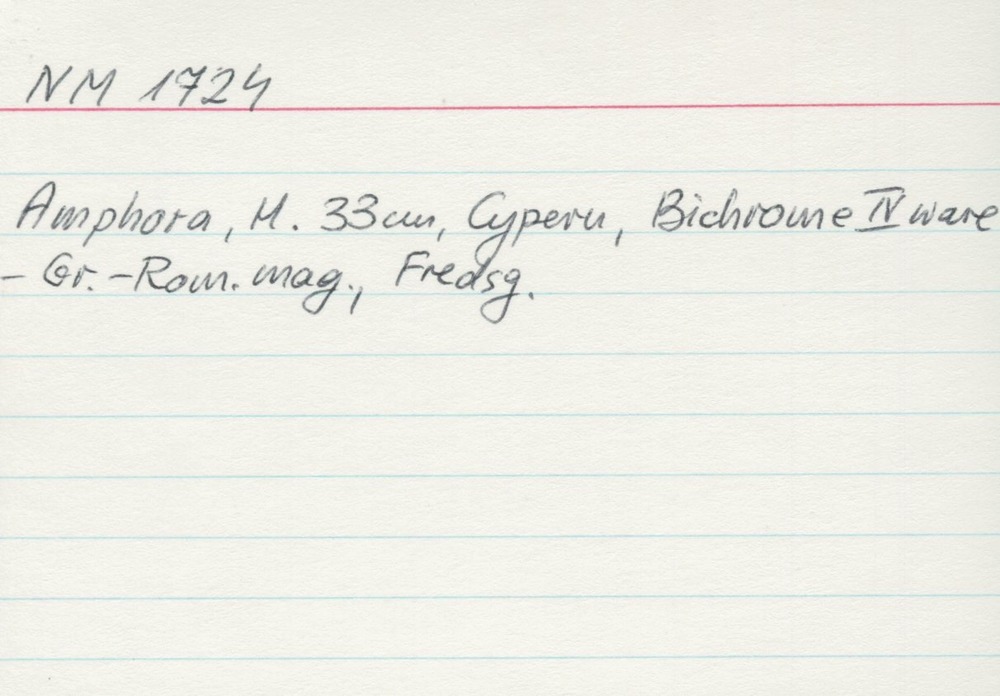 NM 1724
Amphora, H. 33cm, Cypern, Bichrome IV ware
- Gr.-Rom. mag., Fredsg.